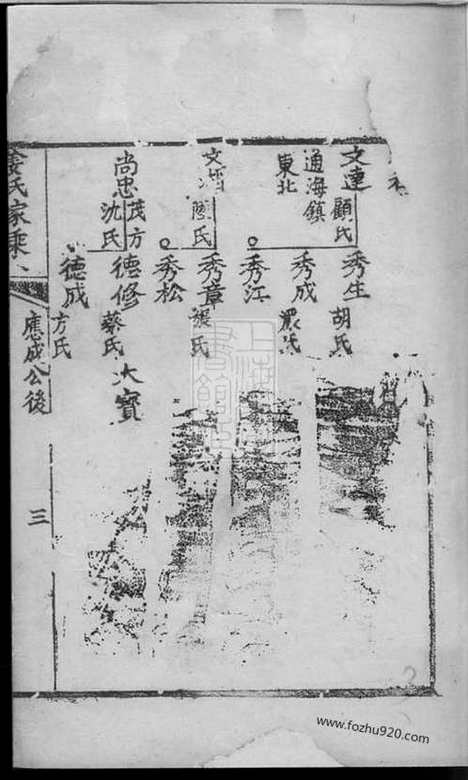 文達 顧氏
通海鎮
東北
秀生 胡氏
秀成 嚴氏
秀江
文 陳氏
秀章 張氏
秀松
尚忠 茂方
沈氏
德修 蔡氏 大寳
德成 方氏
氏家乘
應成公後
三
上海圖書館藏
www.fozhu920.com